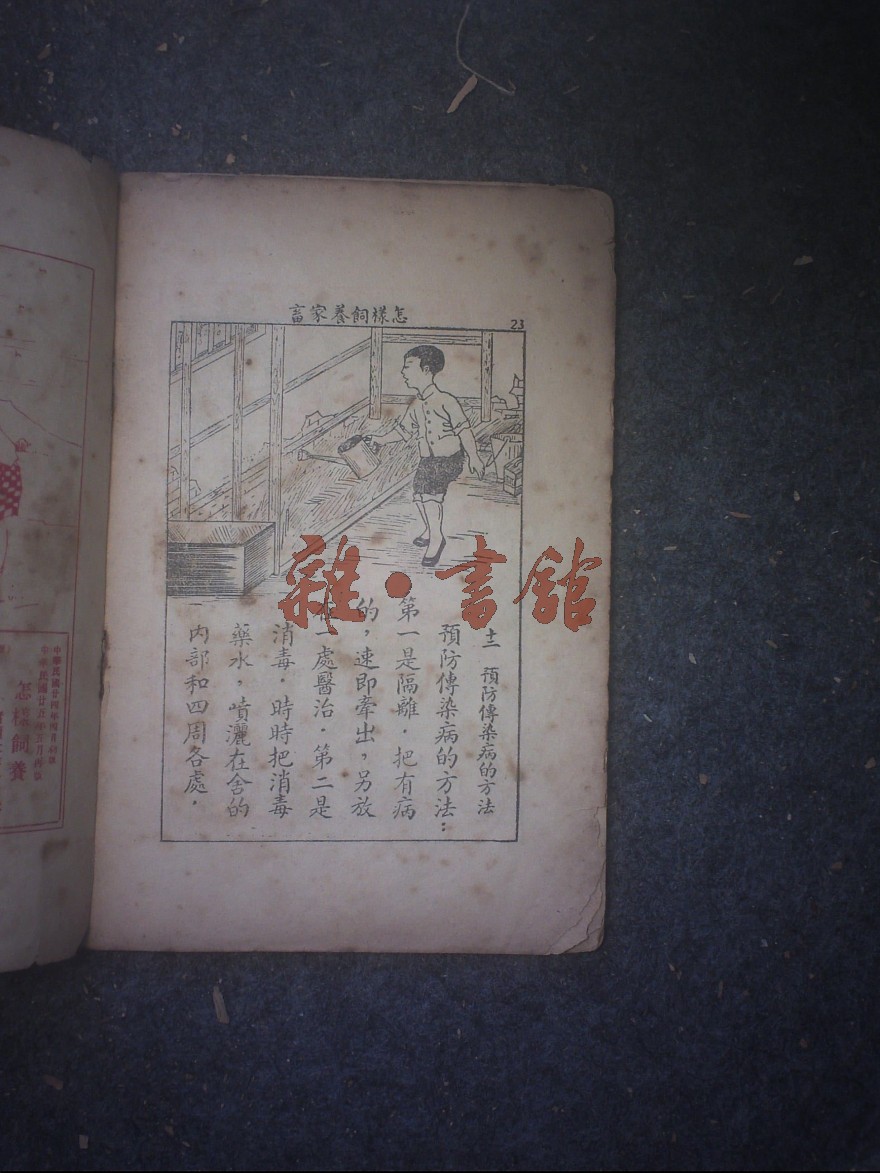 怎樣飼養家畜
23
十二 預防傳染病的方法
預防傳染病的方法：
第一是隔離．把有病
的，速即牽出，另放
一處醫治．第二是
消毒．時時把消毒
藥水，噴灑在舍的
內部和四周各處．
雜·書館
中華民國廿四年四月初版
中華民國廿五年三月再版
怎樣飼養